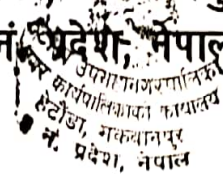 नं. प्रदेश, नेपाल
उपमहानगरपालिका
नगर कार्यपालिकाको कार्यालय
हेटौंडा, मकवानपुर
नं. प्रदेश, नेपाल